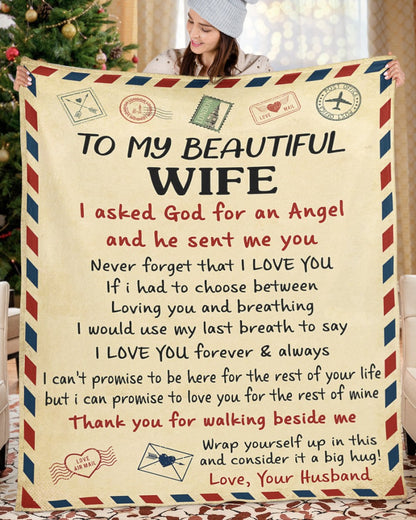 LOVE MAIL
TO MY BEAUTIFUL
WIFE
I asked God for an Angel
and he sent me you
Never forget that I LOVE YOU
If i had to choose between
Loving you and breathing
I would use my last breath to say
I LOVE YOU forever & always
I can't promise to be here for the rest of your life
but i can promise to love you for the rest of mine
Thank you for walking beside me
Wrap yourself up in this
and consider it a big hug!
Love, Your Husband
LOVE
AIR MAIL